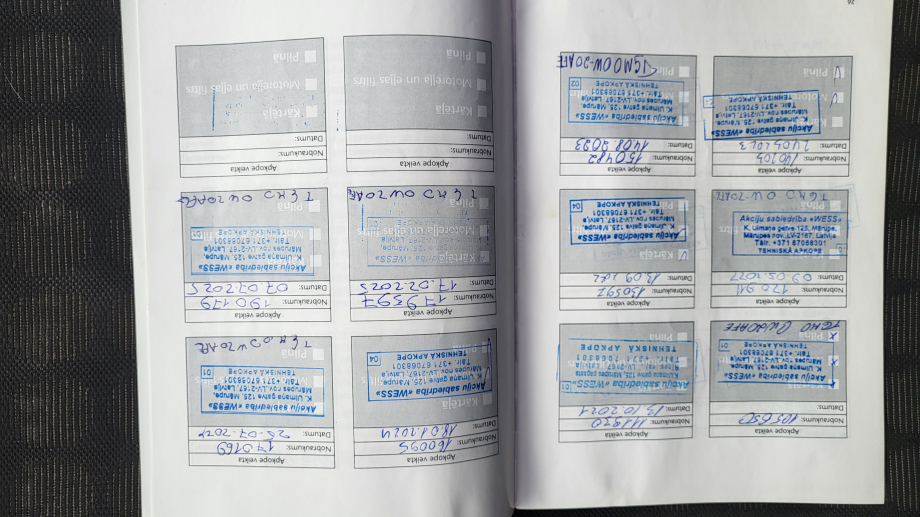 Apkope veikta
Nobraukums: 105650
Datums:
Kārtējā
Akciju sabiedrība «WESS»
K. Ulmaņa gatve 125, Mārupe,
Mārupes nov. LV-2167, Latvija
Tālr. +371 67068301
TEHNISKĀ APKOPE
01
Apkope veikta
Nobraukums: 111920
Datums: 13.10.2021
Akciju sabiedrība «WESS»
Tālr. +371 67068301
TEHNISKĀ APKOPE
01
Apkope veikta
Nobraukums:
Datums: 09.05.2022
Akciju sabiedrība «WESS»
K. Ulmaņa gatve 125, Mārupe,
Mārupes nov. LV-2167, Latvija
Tālr. +371 67068301
TEHNISKĀ APKOPE
Pilnā
TGMO 0W-20AFE
Apkope veikta
Nobraukums: 130592
Datums:
Kārtējā
Akciju sabiedrība «WESS»
K. Ulmaņa gatve 125, Mārupe,
Mārupes nov. LV-2167, Latvija
Tālr. +371 67068301
TEHNISKĀ APKOPE
04
Pilnā
Apkope veikta
Nobraukums: 140205
Datums:
Akciju sabiedrība «WESS»
K. Ulmaņa gatve 125, Mārupe,
Mārupes nov. LV-2167, Latvija
Tālr. +371 67068301
TEHNISKĀ APKOPE
Pilnā
Apkope veikta
Nobraukums: 150482
Datums: 14.08.2023
Akciju sabiedrība «WESS»
K. Ulmaņa gatve 125, Mārupe,
Mārupes nov. LV-2167, Latvija
Tālr. +371 67068301
TEHNISKĀ APKOPE
02
Pilnā
TGMO 0W-20AFE
26
Apkope veikta
Nobraukums: 160095
Datums: 18.01.2024
Kārtējā
Akciju sabiedrība «WESS»
K. Ulmaņa gatve 125, Mārupe,
Mārupes nov. LV-2167, Latvija
Tālr. +371 67068301
TEHNISKĀ APKOPE
04
Apkope veikta
Nobraukums: 170169
Datums: 25.07.2024
Akciju sabiedrība «WESS»
K. Ulmaņa gatve 125, Mārupe,
Mārupes nov. LV-2167, Latvija
Tālr. +371 67068301
TEHNISKĀ APKOPE
01
Apkope veikta
Nobraukums: 179397
Datums: 17.02.2025
Kārtējā
Akciju sabiedrība «WESS»
K. Ulmaņa gatve 125, Mārupe,
Mārupes nov. LV-2167, Latvija
Tālr. +371 67068301
Pilnā
TGMO 0W20AFE
Apkope veikta
Nobraukums: 190179
Datums: 07.07.2025
Akciju sabiedrība «WESS»
K. Ulmaņa gatve 125, Mārupe,
Mārupes nov. LV-2167, Latvija
Tālr. +371 67068301
TEHNISKĀ APKOPE
01
Pilnā
TGMO 0W20AFE
Apkope veikta
Nobraukums:
Datums:
Kārtējā
Motoreļļa un eļļas filtrs
Pilnā
Apkope veikta
Nobraukums:
Datums:
Kārtējā
Motoreļļa un eļļas filtrs
Pilnā